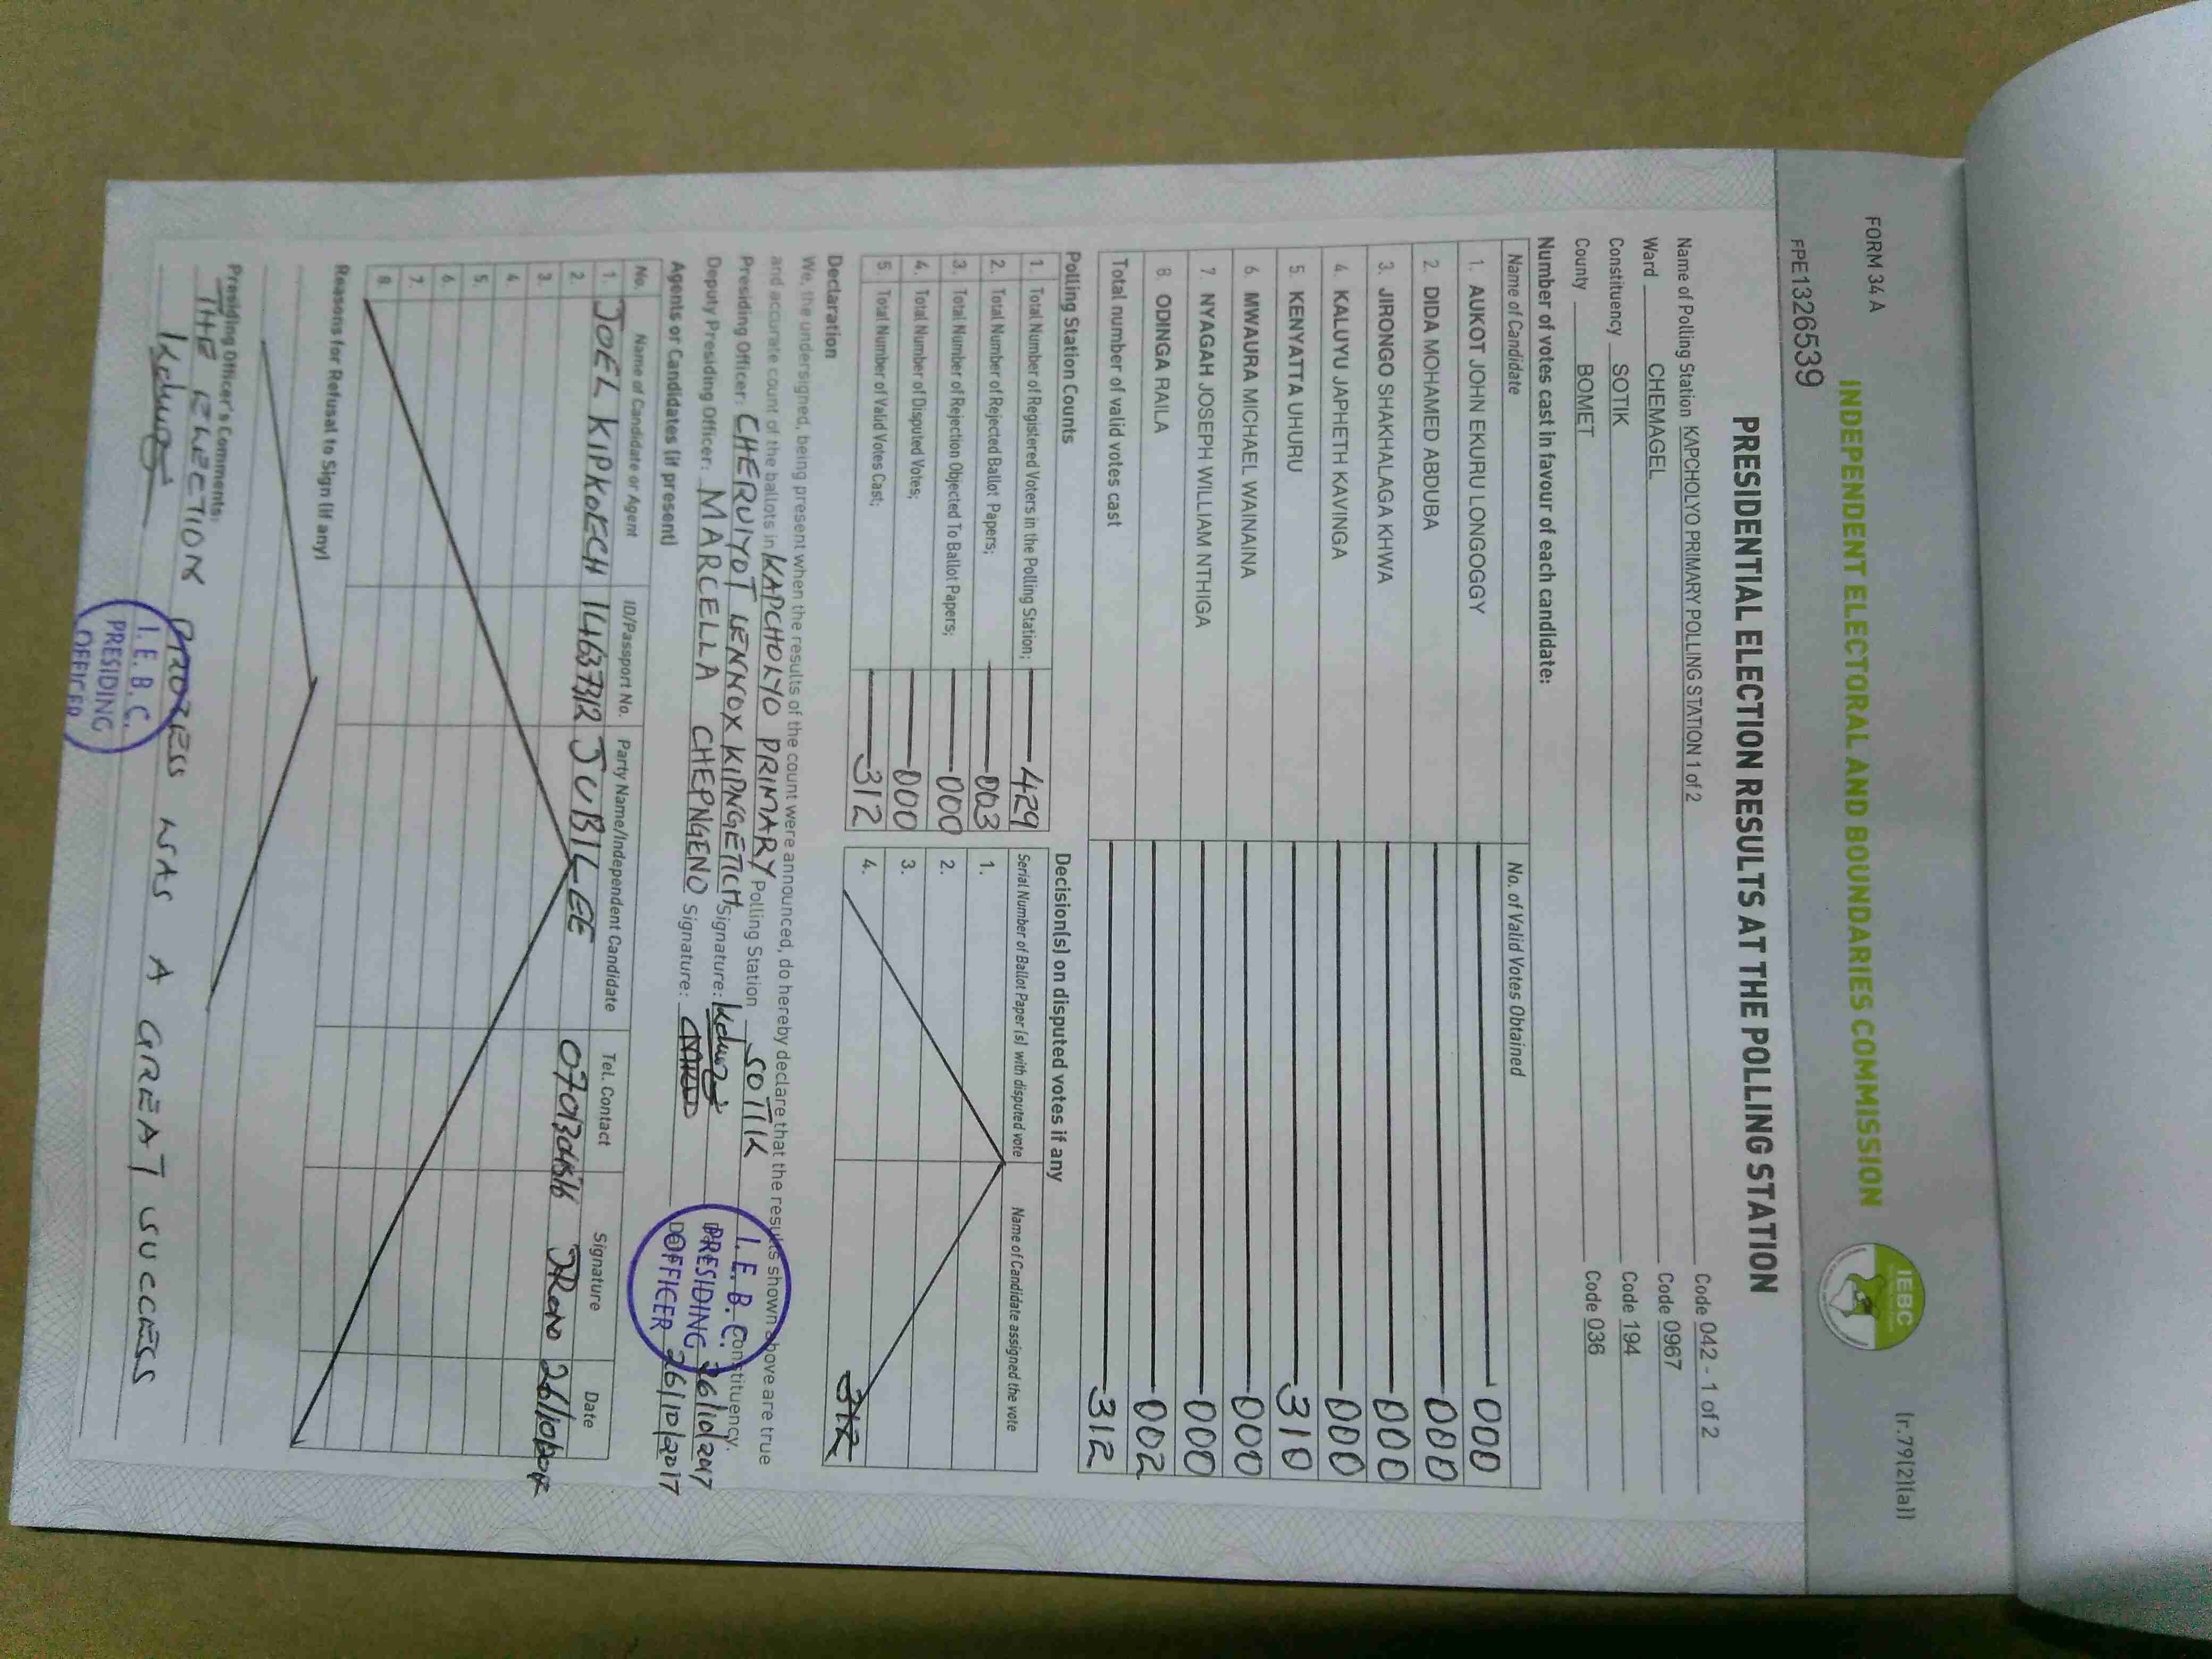 FORM 34 A
(r.79(2)(a))
INDEPENDENT ELECTORAL AND BOUNDARIES COMMISSION
IEBC
FPE1326539
PRESIDENTIAL ELECTION RESULTS AT THE POLLING STATION
Name of Polling Station KAPCHOLYO PRIMARY POLLING STATION 1 of 2 Code 042 - 1 of 2
Ward CHEMAGEL Code 0967
Constituency SOTIK Code 194
County BOMET Code 036
Number of votes cast in favour of each candidate:
Name of Candidate No. of Valid Votes Obtained
1. AUKOT JOHN EKURU LONGOGGY 000
2. DIDA MOHAMED ABDUBA 000
3. JIRONGO SHAKHALAGA KHWA 000
4. KALUYU JAPHETH KAVINGA 000
5. KENYATTA UHURU 310
6. MWAURA MICHAEL WAINAINA 000
7. NYAGAH JOSEPH WILLIAM NTHIGA 000
8. ODINGA RAILA 002
Total number of valid votes cast 312
Polling Station Counts
1. Total Number of Registered Voters in the Polling Station; 429
2. Total Number of Rejected Ballot Papers; 003
3. Total Number of Rejection Objected To Ballot Papers; 000
4. Total Number of Disputed Votes; 000
5. Total Number of Valid Votes Cast; 312
Decision(s) on disputed votes if any
Serial Number of Ballot Paper(s) with disputed vote Name of Candidate assigned the vote
1.
2.
3.
4. 312
Declaration
We, the undersigned, being present when the results of the count were announced, do hereby declare that the results shown above are true
and accurate count of the ballots in KAPCHOLYO PRIMARY Polling Station SOTIK Constituency.
Presiding Officer: CHERUIYOT LENNOX KIPNGETICH Signature: Date 26/10/2017
Deputy Presiding Officer: MARCELLA CHEPNGENO Signature: Date 26/10/2017
I.E.B.C.
PRESIDING
OFFICER
Agents or Candidates (if present)
No. Name of Candidate or Agent ID/Passport No. Party Name/Independent Candidate Tel. Contact Signature Date
1. JOEL KIPKOECH 14637312 JUBILEE 26/10/2017
2.
3.
4
5.
6.
7.
8.
Reasons for Refusal to Sign (if any)
Presiding Officer's Comments:
THE ELECTION PROCESS WAS A GREAT SUCCESS
I.E.B.C.
PRESIDING
OFFICER